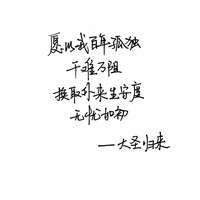 愿以我百年孤独
千难万阻
换取外来生安度
无忧如初
——大圣归来